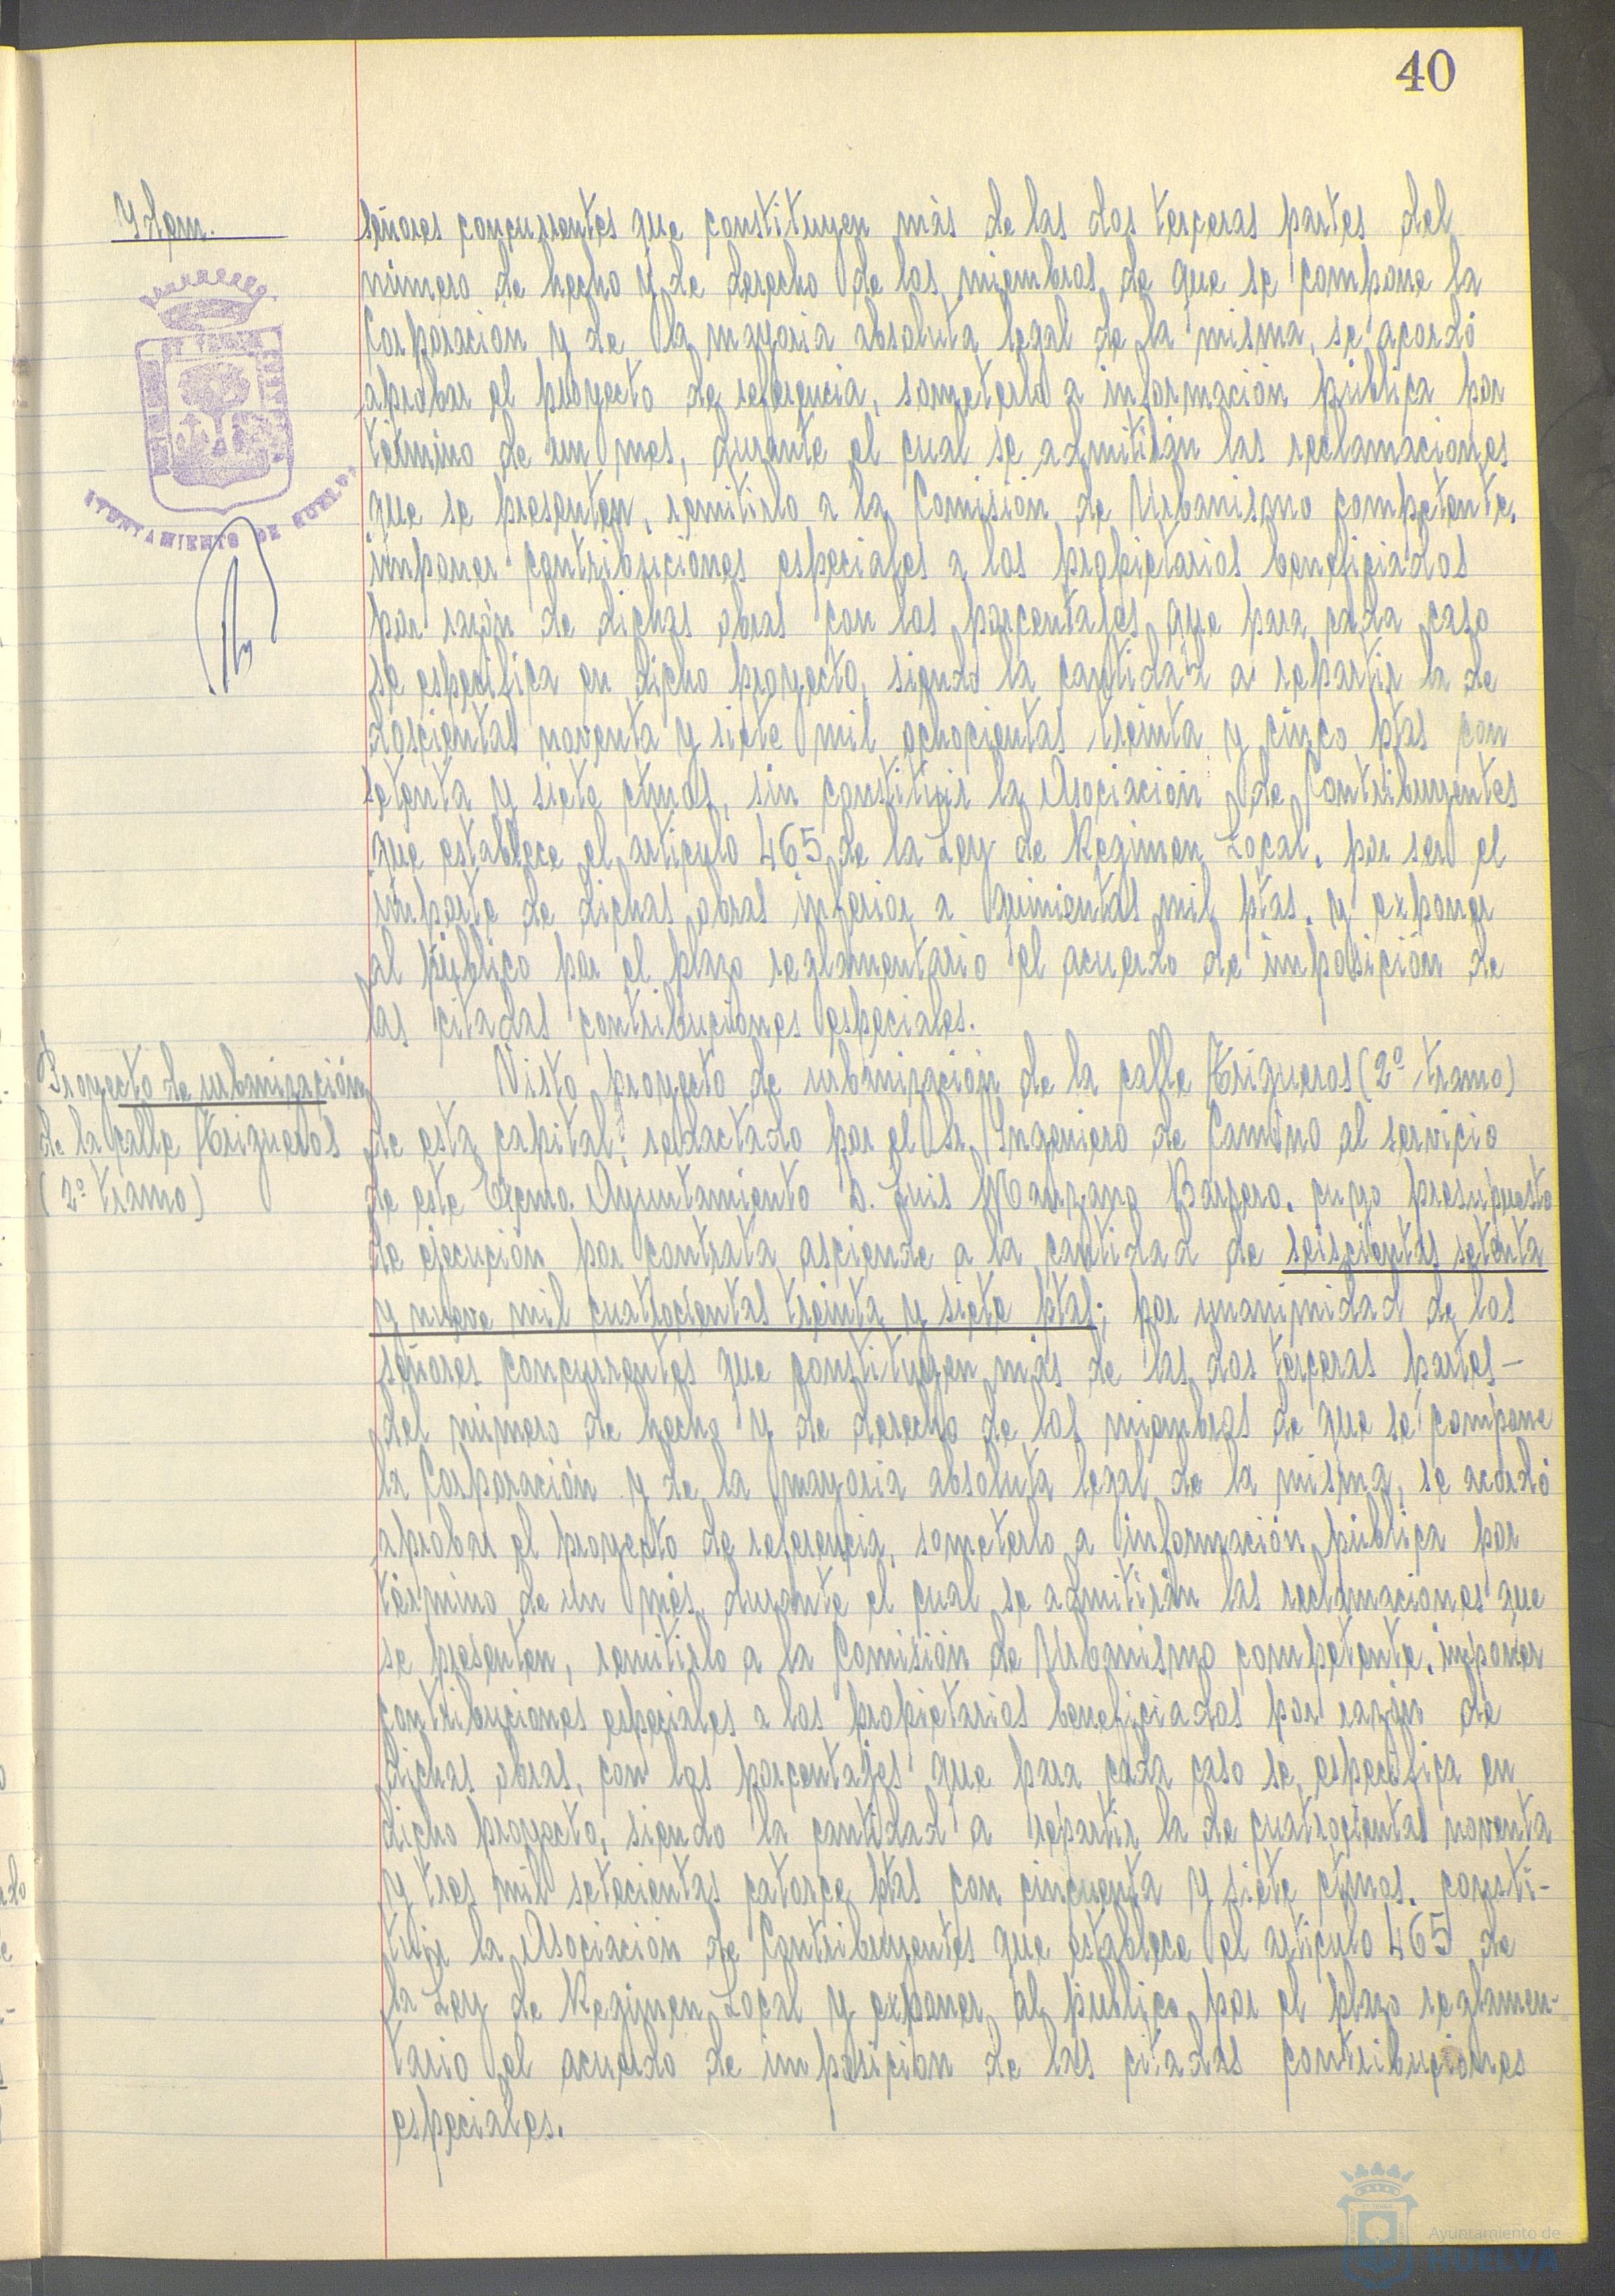 40
Ydem.
señores concurrentes que constituyen más de las dos terceras partes del
número de hecho y de derecho de los miembros de que se compone la
Corporación y de la mayoria absoluta legal de la misma, se acordó
aprobar el proyecto de referencia, someterlo a información pública por
término de un mes, durante el cual se admitirán las reclamaciones
que se presenten, remitirlo a la Comisión de Urbanismo competente,
imponer contribuciones especiales a los propietarios beneficiados
por razón de dichas obras con los porcentajes que para cada caso
se especifica en dicho proyecto, siendo la cantidad a repartir la de
doscientas noventa y siete mil ochocientas treinta y cinco ptas con
setenta y siete ctmos, sin constituir la Asociación de Contribuyentes
que establece el artículo 465 de la Ley de Regimen Local, por ser el
importe de dichas obras inferior a quinientas mil ptas. y exponer
al público por el plazo reglamentario el acuerdo de imposición de
las citadas contribuciones especiales.
AYUNTAMIENTO DE HUELVA
Proyecto de urbanización
de la calle Trigueros
(2º tramo)
Visto proyecto de urbanización de la calle Trigueros (2º tramo)
de esta capital, redactado por el Sr. Ingeniero de Camino al servicio
de este Excmo. Ayuntamiento D. Luis Manzano Barrero, cuyo presupuesto
de ejecución por contrata asciende a la cantidad de seiscientas setenta
y nueve mil cuatrocientas treinta y siete ptas; por unanimidad de los
señores concurrentes que constituyen más de las dos terceras partes-
del número de hecho y de derecho de los miembros de que se compone
la Corporación y de la mayoria absoluta legal de la misma, se acordó
aprobar el proyecto de referencia, someterlo a información pública por
término de un mes, durante el cual se admitirán las reclamaciones que
se presenten, remitirlo a la Comisión de Urbanismo competente, imponer
contribuciones especiales a los propietarios beneficiados por razón de
dichas obras, con los porcentajes que para cada caso se especifica en
dicho proyecto, siendo la cantidad a repartir la de cuatrocientas noventa
y tres mil setecientas catorce ptas con cincuenta y siete ctmos. consti-
tuir la Asociación de Contribuyentes que establece el artículo 465 de
la Ley de Regimen Local y exponer al público por el plazo reglamen-
tario el acuerdo de imposición de las citadas contribuciones
especiales.
Ayuntamiento de
HUELVA